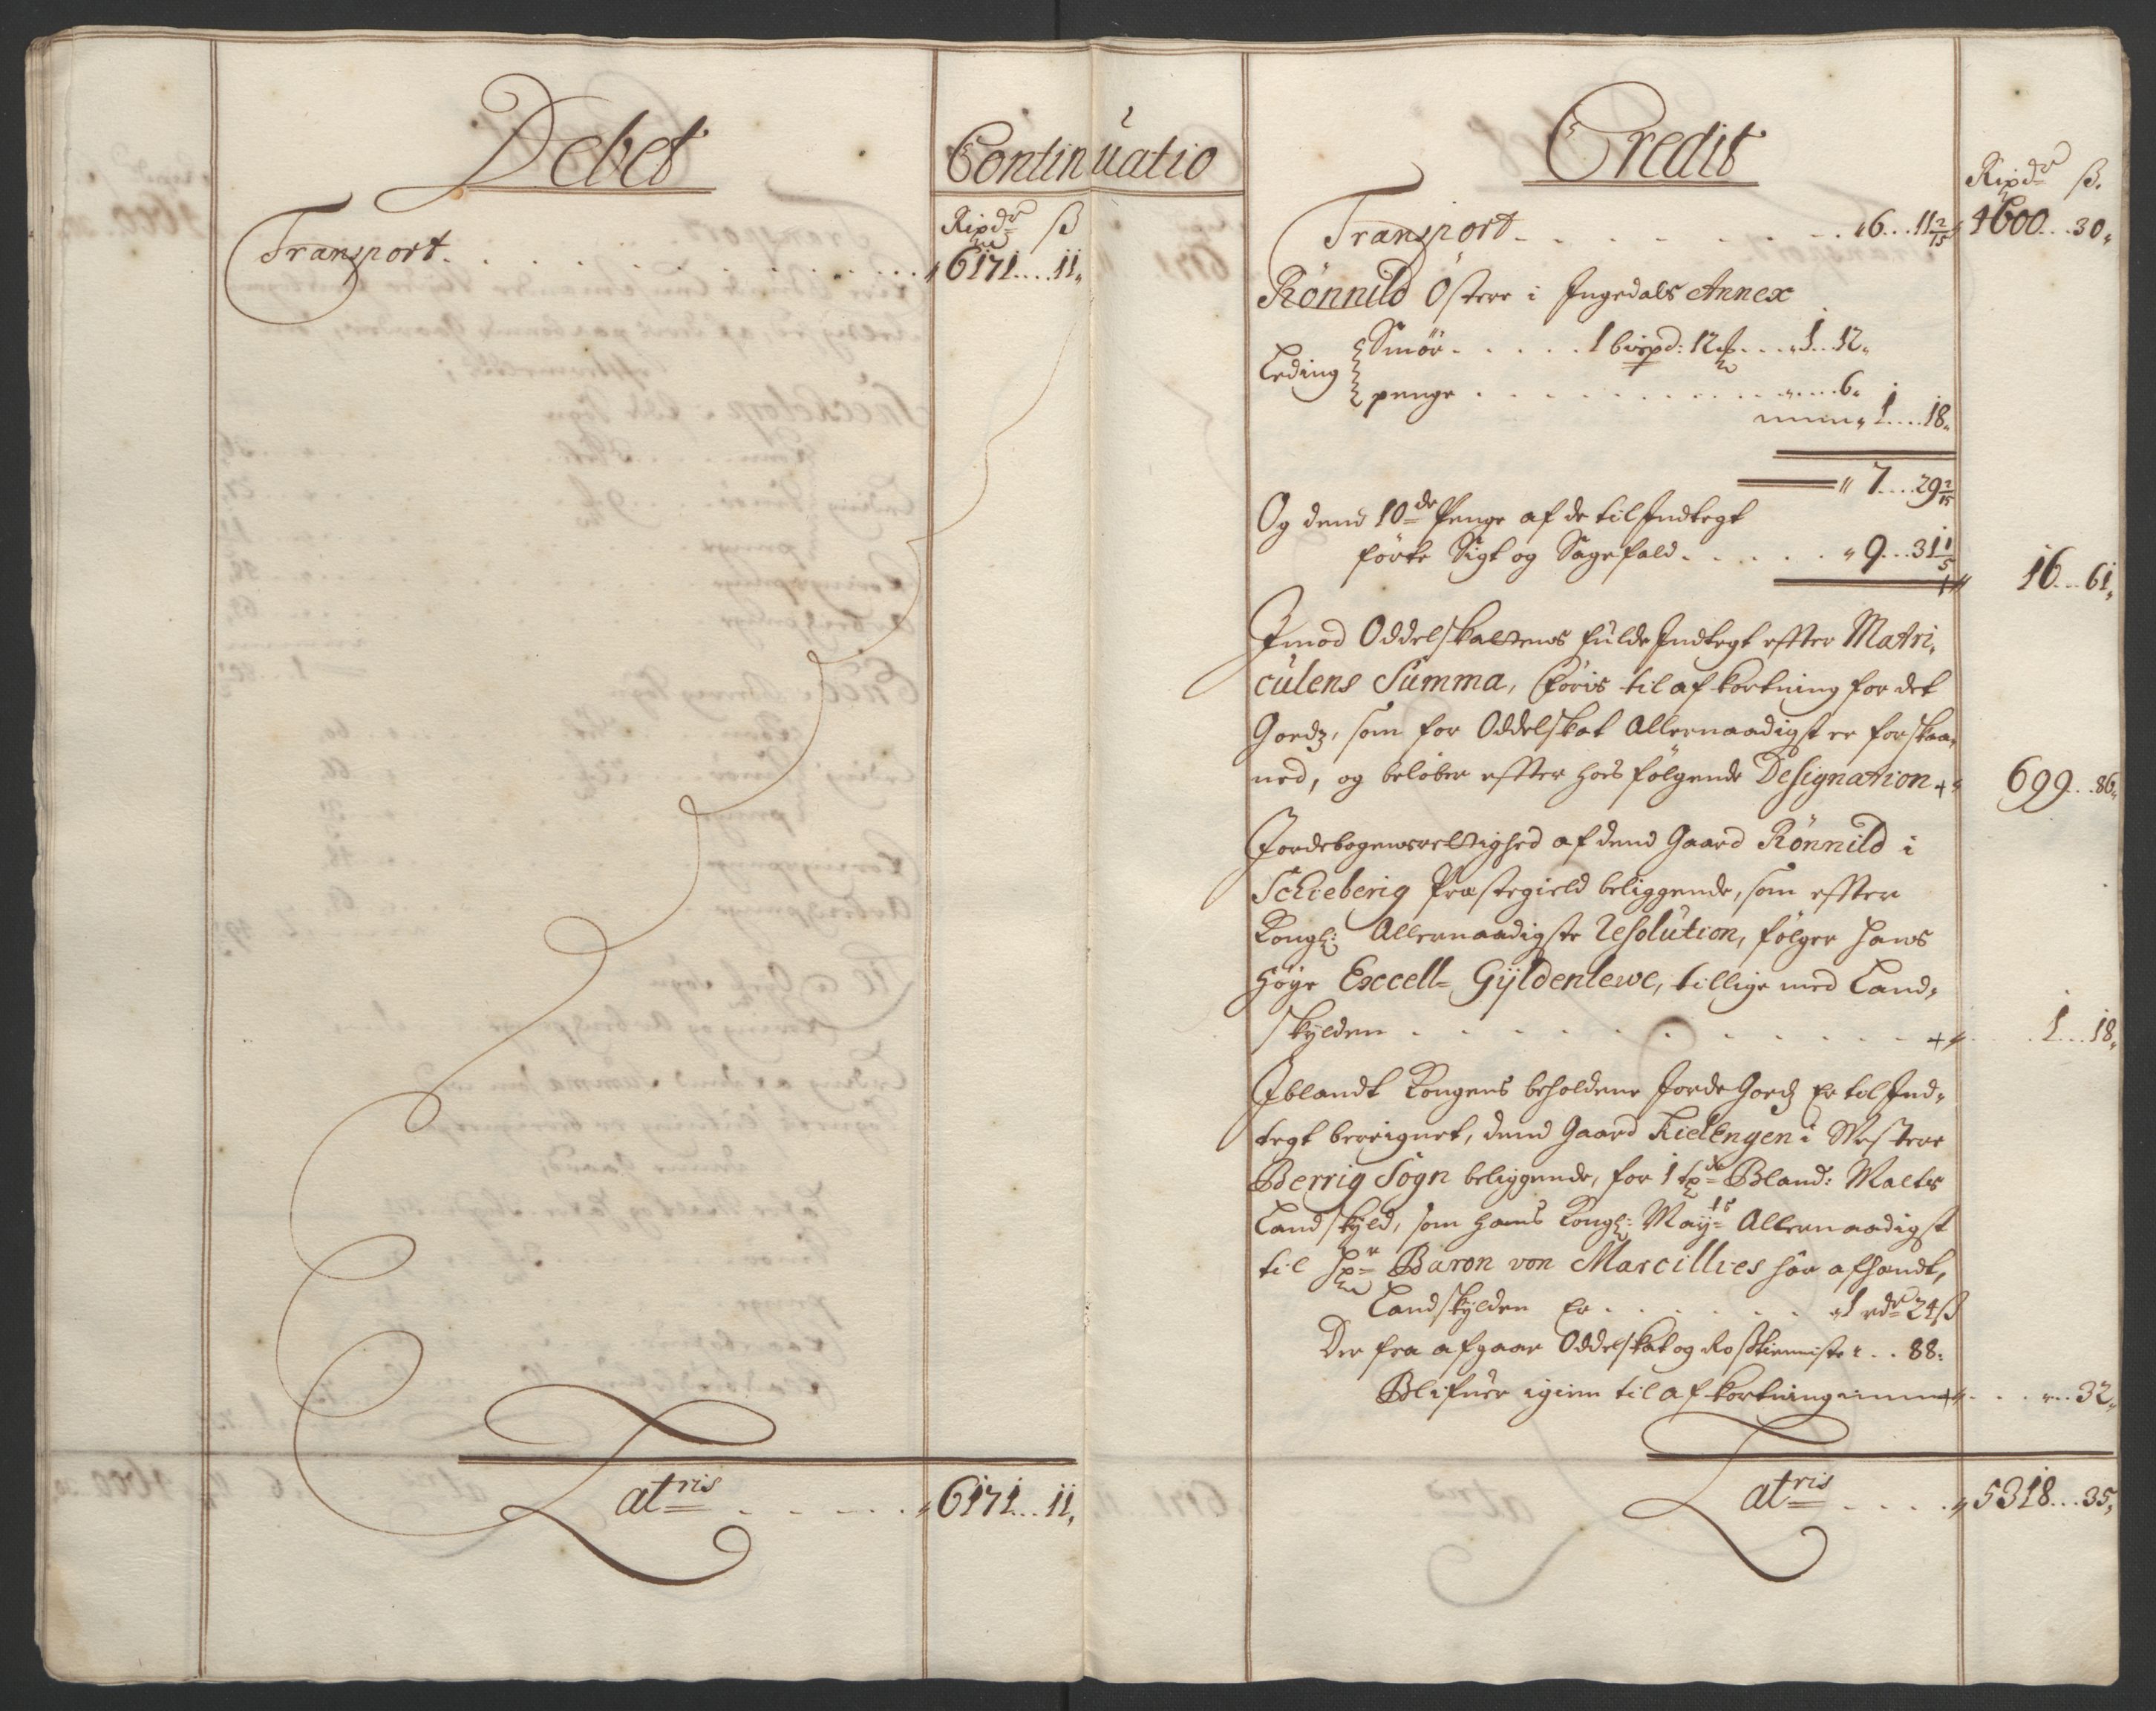 Debet
Continuatio
Rixdr ß
Transport. . . . . . . . . . . . 6171....11,
Latris . . . . . 6171...11,
Credit
Rixdr ß.
Transport. . . . . . . . . 6...11 2/15 4600...30,
Rönnild Östere i Ingedals Annex
Leding
Smör. . . . . 1 bispd: 12 . . . 1..12,
penge . . . . . . . . . . . . . . 6,
1....18,
7....29 2/15
Og dend 10de Penge af de til Indtegt
förte Sigt og Sagefald. . . . . 9...31 1/5 16...61,
Imod Oddelskattens fulde Indtegt effter Matri,
culens Summa, föris til afkortning for det
Goedz, som for Oddelskat Allernaadigst er forskaa,
ned, og beløber effter hoes følgende Designation 699...86,
Jordebogensrettighed af dend Gaard Rönnild i
Schieberig Præstegield beliggende, som effter
Kongl: Allernaadigste Resolution, følger hans
Høye Excell= Gÿldenlewe, tillige med Land,
skÿlden . . . . . . . . . . . . 1...18,
Iblandt Kongens beholdene Jorde Goedz Er til Ind,
tegt beregnet, dend Gaard Kielengen i Westere
Berrig Sogn beliggende, for 1 tpde Bland: Maltes
Landskÿld, som hans Kongl: Maÿts Allernaadigst
til Hr Baron von Marcillies hår afhendt,
Landskÿlden Er . . . . . . . 1 rdr 24 ß
Der fra afgaar Oddelskat og Rosstienniste . . 88:
Blifuer igien til afkortning . . . . . 32,
Latris . . . . 5318...35,